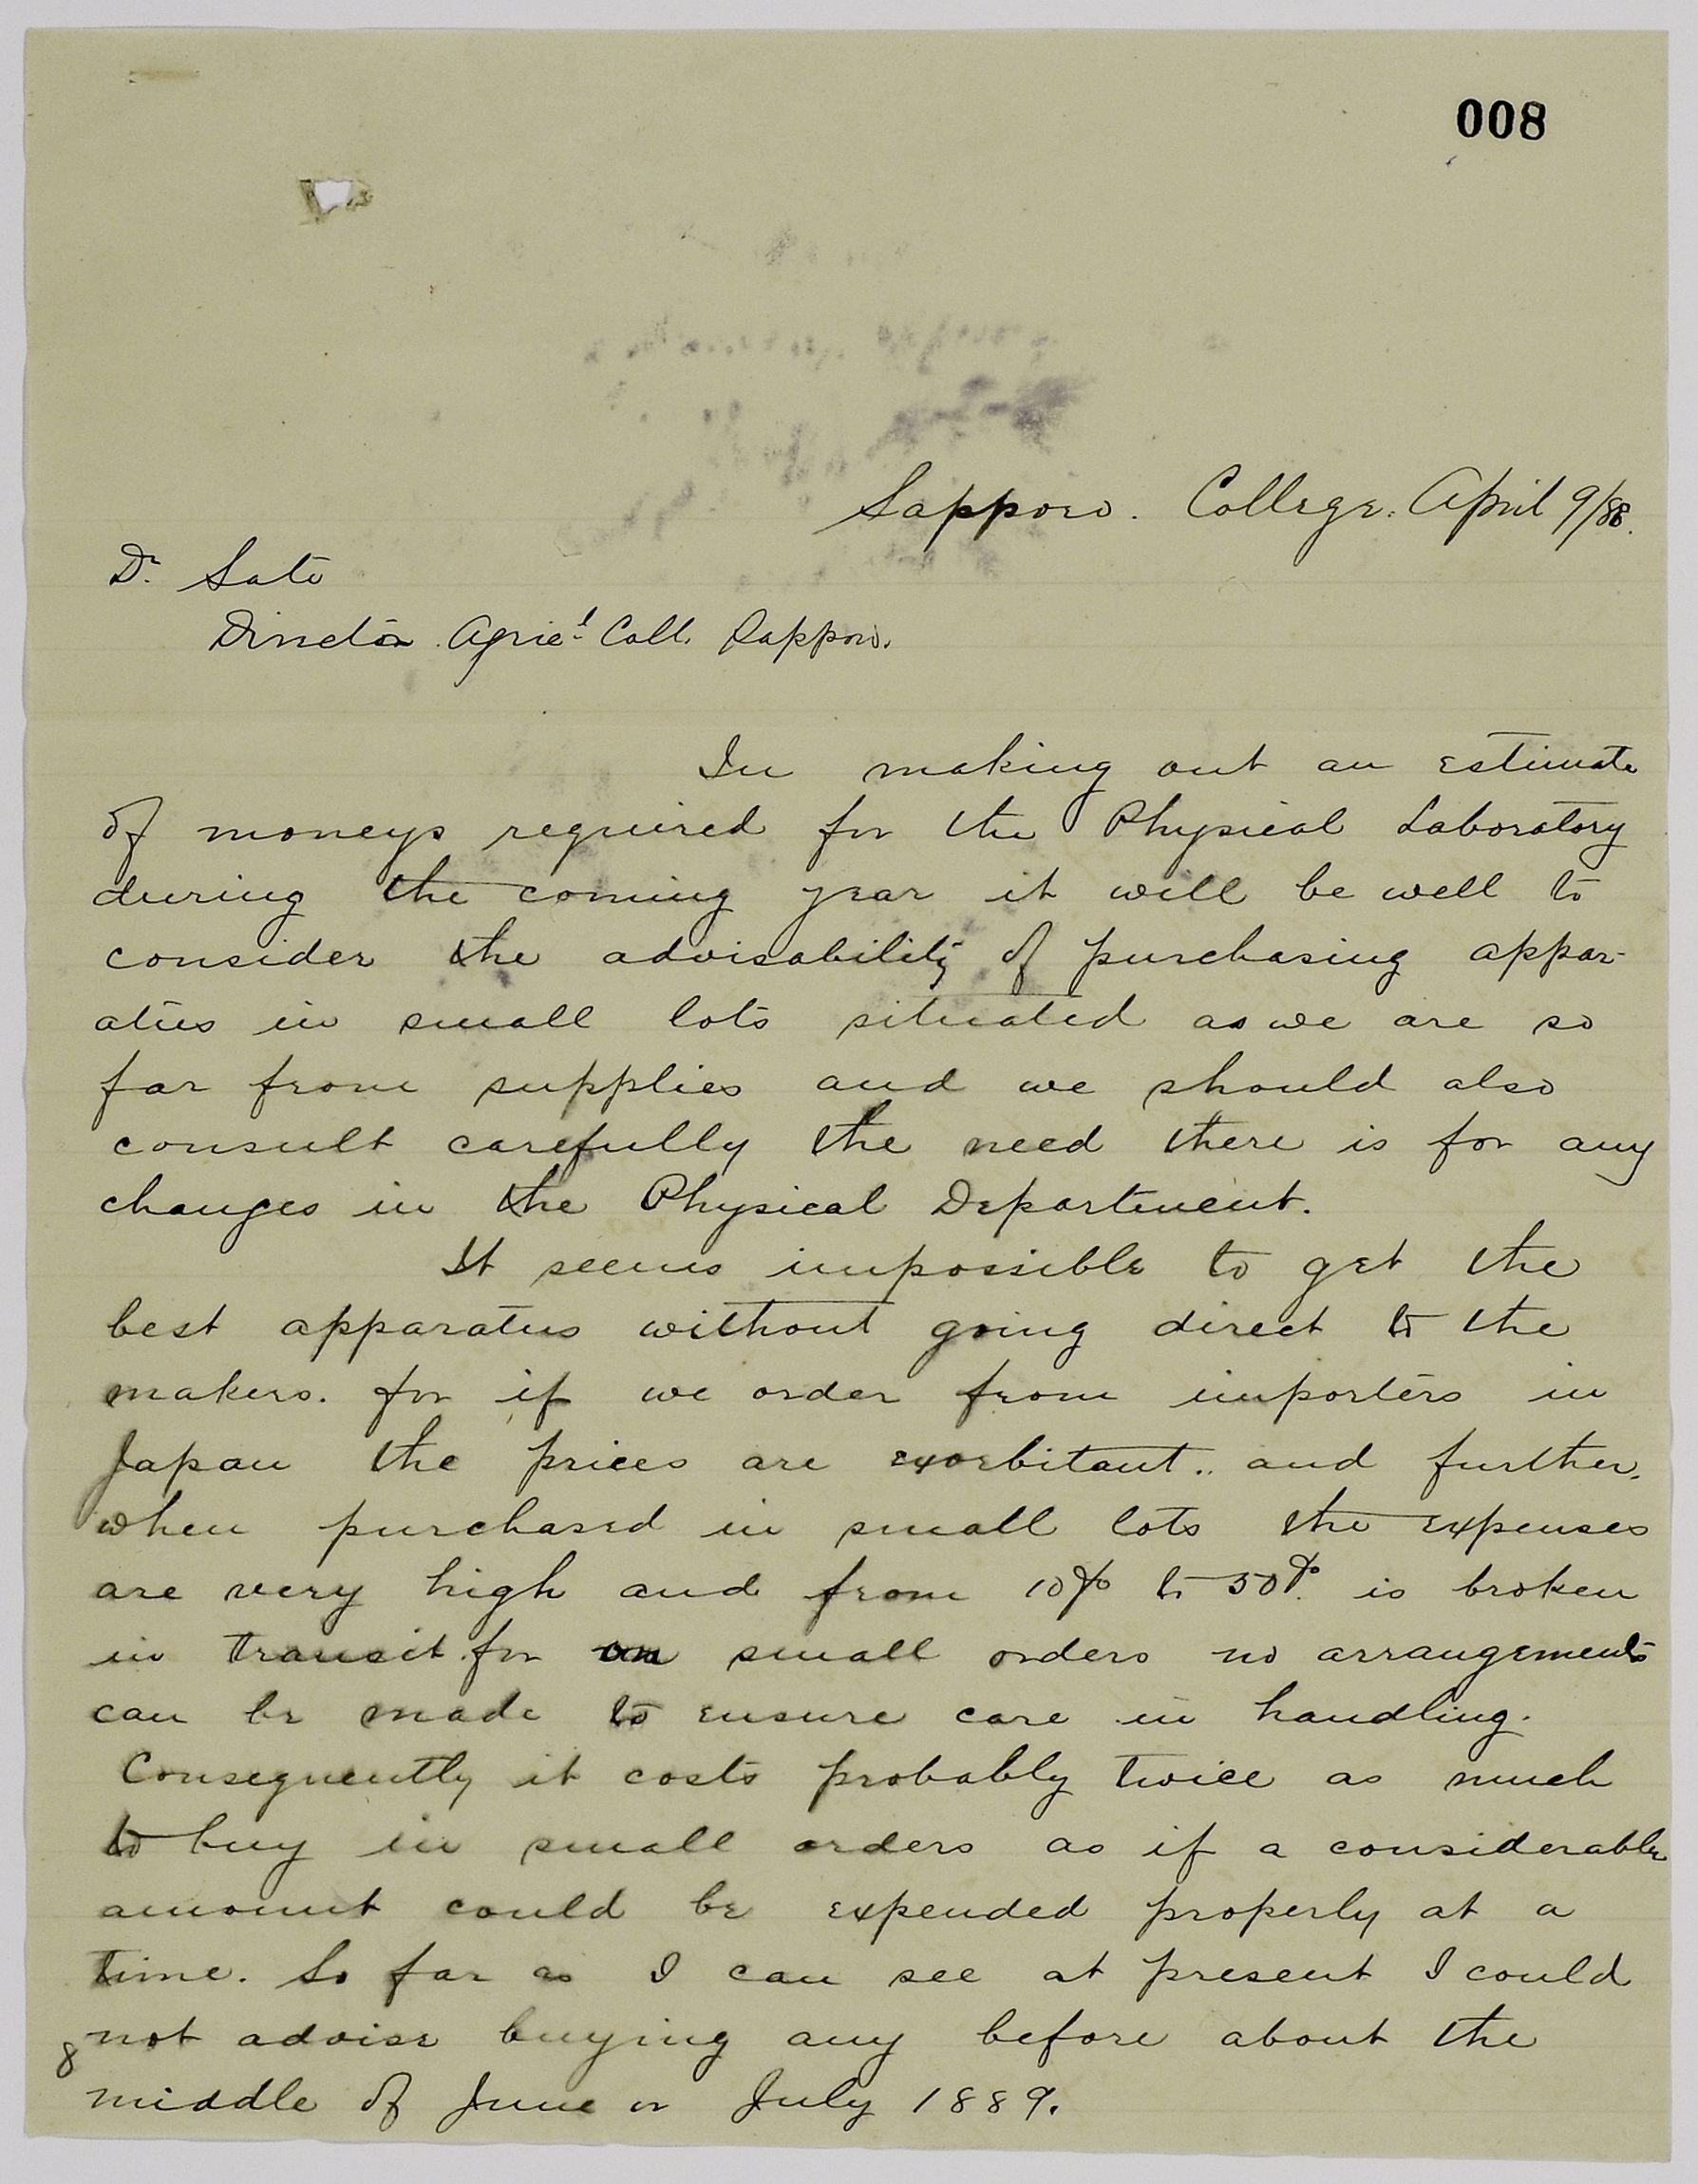 008
Sapporo. College. April 9/88.
Dr. Sato
Director Agric'l Coll. Sapporo.
In making out an estimate
of moneys required for the Physical Laboratory
during the coming year it will be well to
consider the advisability of purchasing appar-
atus in small lots situated as we are so
far from supplies and we should also
consult carefully the need there is for any
changes in the Physical Department.
It seems impossible to get the
best apparatus without going direct to the
makers. for if we order from importers in
Japan the prices are exorbitant.. and further,
when purchased in small lots the expenses
are very high and from 10% to 50%. is broken
in transit. for on small orders no arrangements
can be made to ensure care in handling.
Consequently it costs probably twice as much
to buy in small orders as if a considerable
amount could be expended properly at a
time. So far as I can see at present I could
not advise buying any before about the
8
middle of June or July 1889.